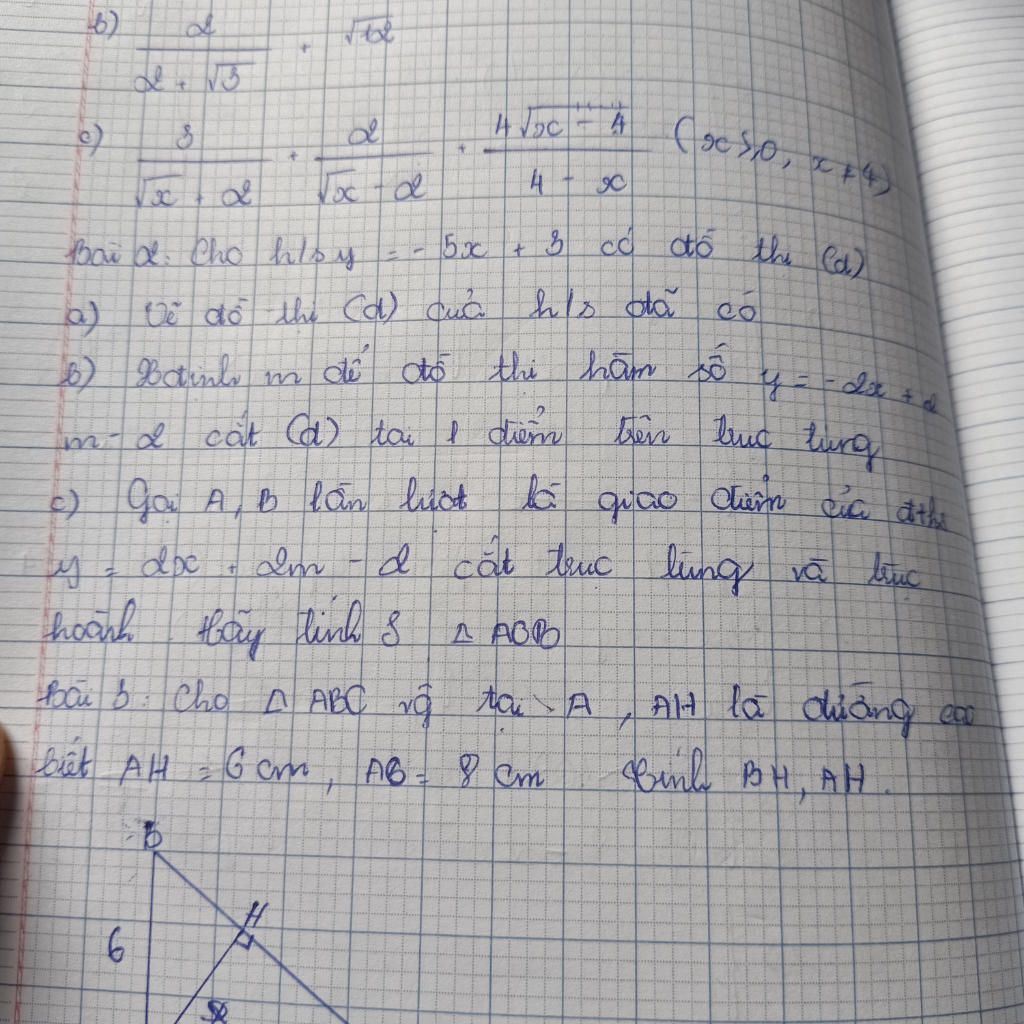 b) 2/(2 + √3) + √12
c) 3/(√x + 2) + 2/(√x - 2) + (4√x - 4)/(4 - x) (x ≥ 0, x ≠ 4)
Bài 2: Cho h/s y = -5x + 3 có đồ thị (d)
a) Vẽ đồ thị (d) của h/s đã có
b) Xđịnh m để đồ thị hàm số y = -2x + 2
m - 2 cắt (d) tại 1 điểm trên trục tung
c) Gọi A, B lần lượt là giao điểm của đthị
y = 2x + 2m - 2 cắt trục tung và trục
hoành Hãy tính S Δ AOB
Bài 3: Cho Δ ABC vg tại A, AH là đường cao
biết AH = 6 cm, AB = 8 cm tính BH, AH.
B
H
6
x